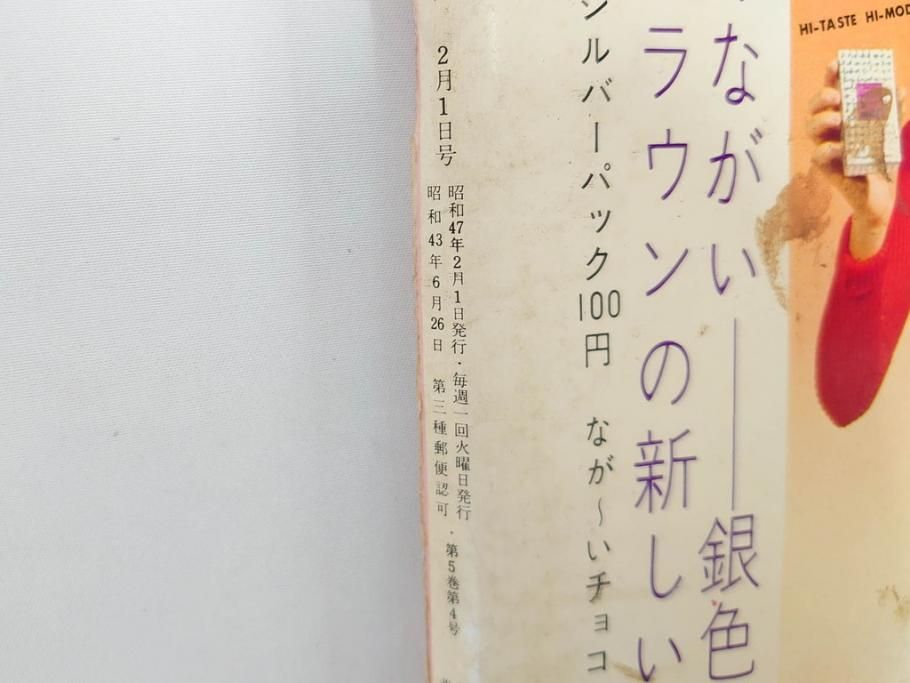 HI-TASTE HI-MOD
ながい——銀色
ラウンの新しい
シルバーパック100円 なが〜いチョコ
2月1日号
昭和47年2月1日発行・毎週一回火曜日発行・第5巻第4号
昭和43年6月26日 第三種郵便認可